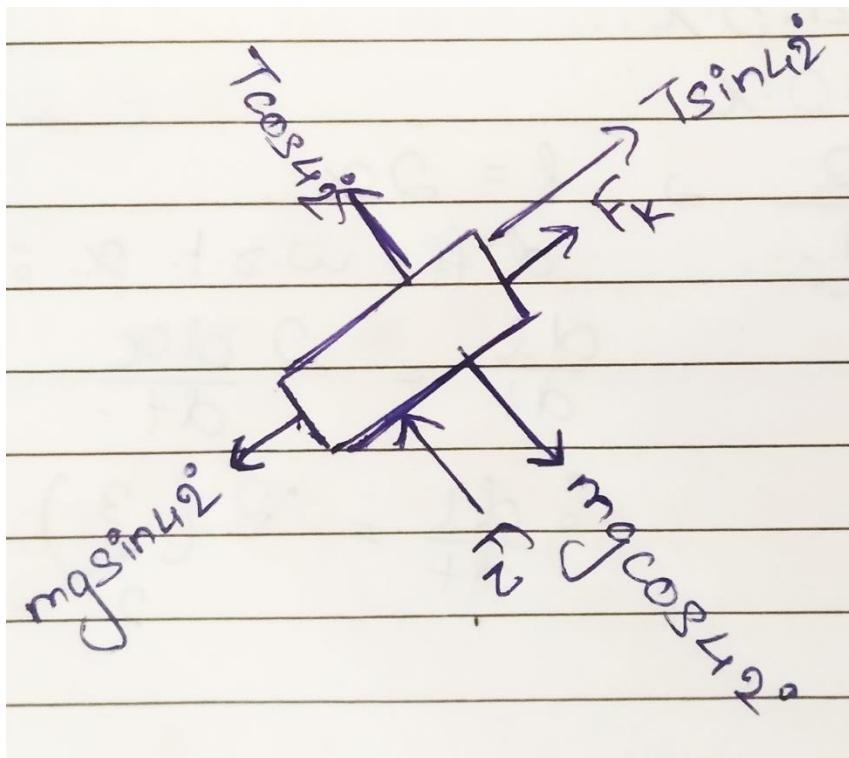 Tcos42°
Tsin42°
Fk
mgsin42°
FN
mgcos42°